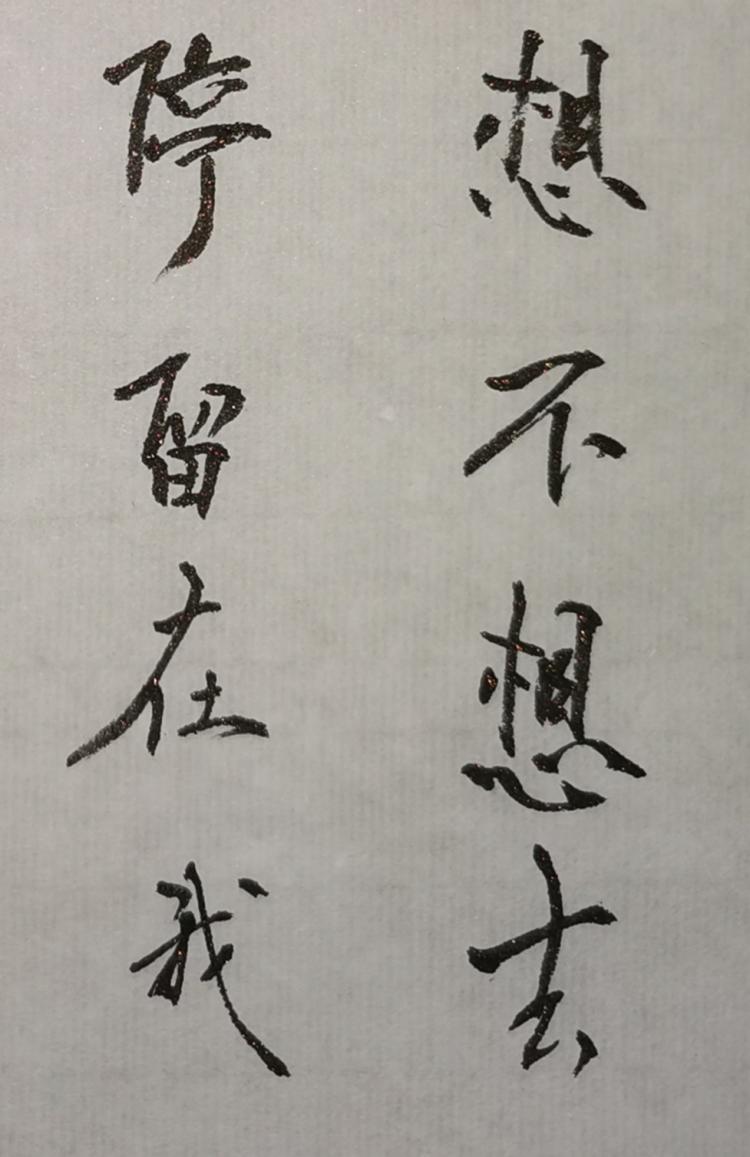 想不想去
停留在我